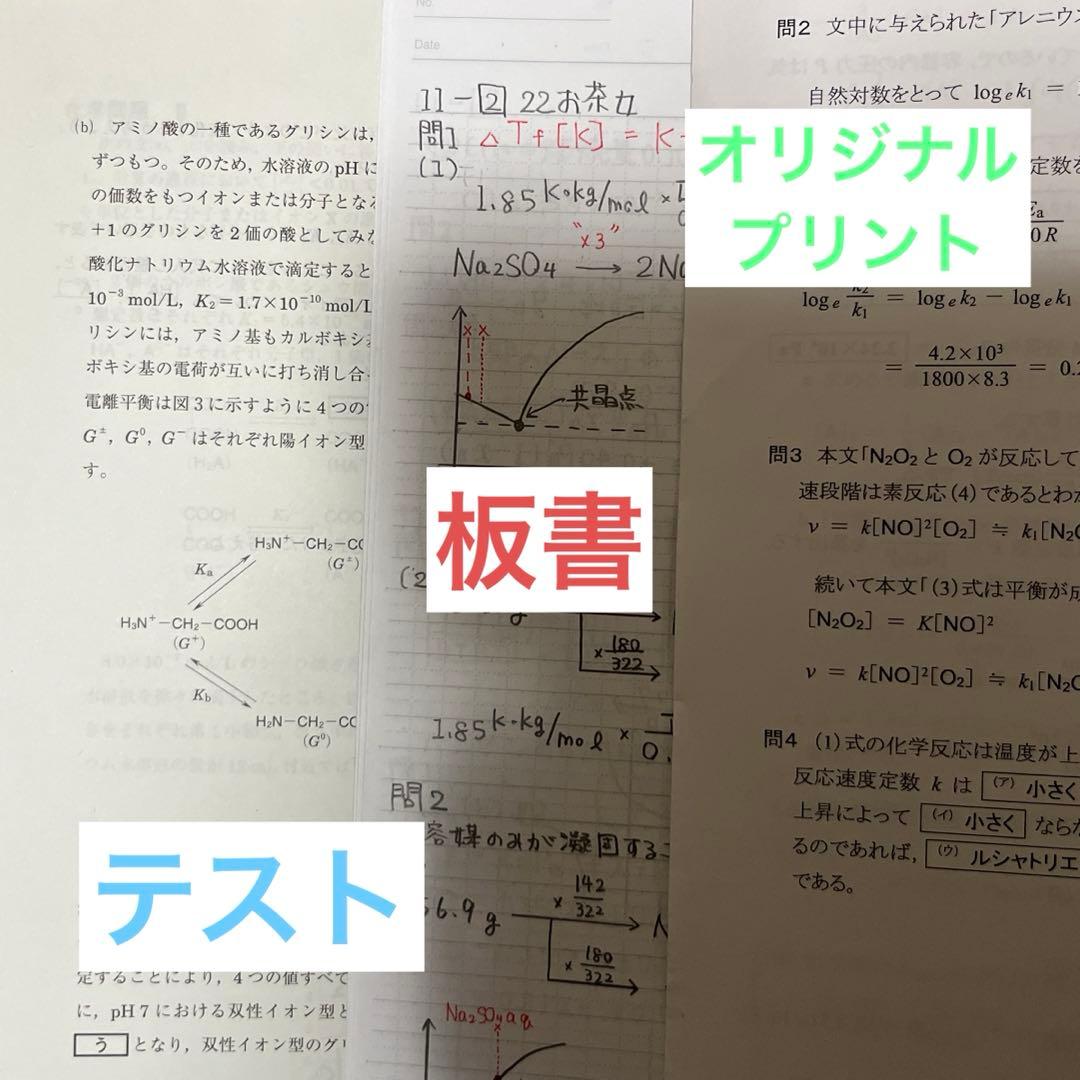 (b) アミノ酸の一種であるグリシンは,
ずつもつ。そのため, 水溶液の pH に
の価数をもつイオンまたは分子となる
+1のグリシンを2価の酸としてみな
酸化ナトリウム水溶液で滴定すると
10⁻³ mol/L, K₂=1.7×10⁻¹⁰ mol/L
リシンには, アミノ基もカルボキシ基
ボキシ基の電荷が互いに打ち消し合
電離平衡は図3に示すように4つの
G±, G⁰, G⁻ はそれぞれ陽イオン型
す。
H₃N⁺−CH₂−CO
(G±)
Ka
H₃N⁺−CH₂−COOH
(G⁺)
Kb
H₂N−CH₂−CO
(G⁰)
テスト
定することにより, 4つの値すべて
に, pH7における双性イオン型と
う となり, 双性イオン型のグリ
No.
Date
11-2 22お茶女
問1 △Tf[K] = K
(1)
1.85 K·kg/mol ×
"×3"
Na₂SO₄ → 2Na
共晶点
板書
(2
g
× 180/322
1.85 K·kg/mol ×
0.
問2
溶媒のみが凝固する
56.9g × 142/322
× 180/322
Na₂SO₄aq
問2 文中に与えられた「アレニウス
自然対数をとって logₑk₁ =
オリジナル
プリント
定数を
Ea
0R
logₑ k₂/k₁ = logₑk₂ − logₑk₁
= 4.2×10³/1800×8.3 = 0.2
問3 本文「N₂O₂ と O₂ が反応して
速段階は素反応(4)であるとわか
v = k[NO]²[O₂] ≒ k₁[N₂O
続いて本文「(3)式は平衡が成
[N₂O₂] = K[NO]²
v = k[NO]²[O₂] ≒ k₁[N₂O
問4 (1)式の化学反応は温度が上
反応速度定数 k は (ア) 小さく
上昇によって (イ) 小さく ならな
るのであれば, (ウ) ルシャトリエ
である。